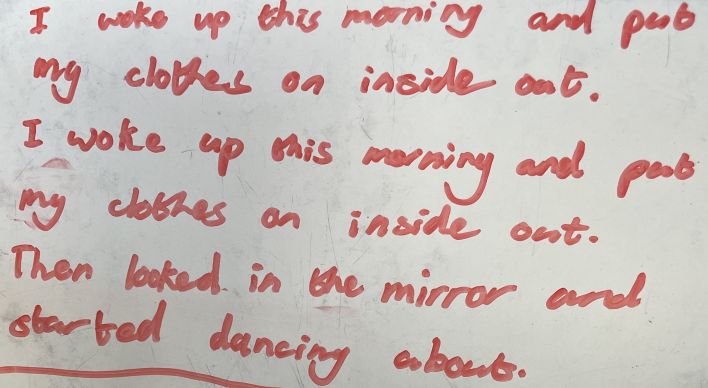 I woke up this morning and put
my clothes on inside out.
I woke up this morning and put
my clothes on inside out.
Then looked in the mirror and
started dancing about.